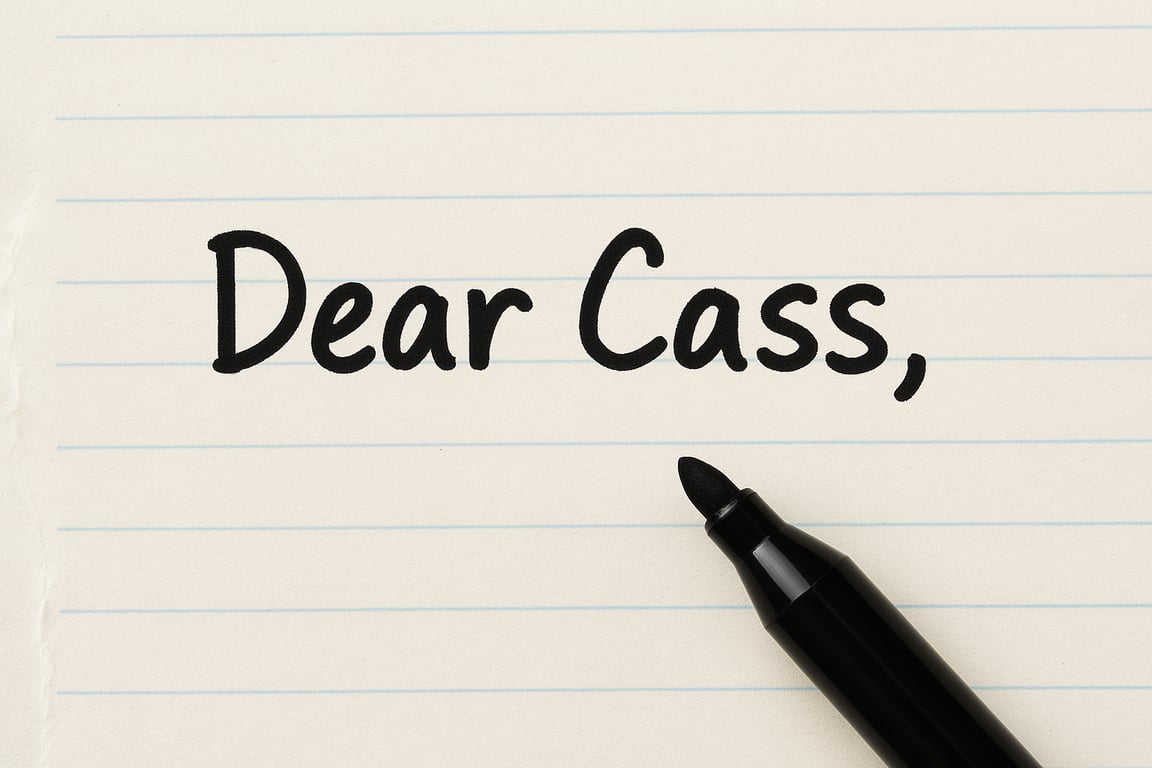 Dear Cass,